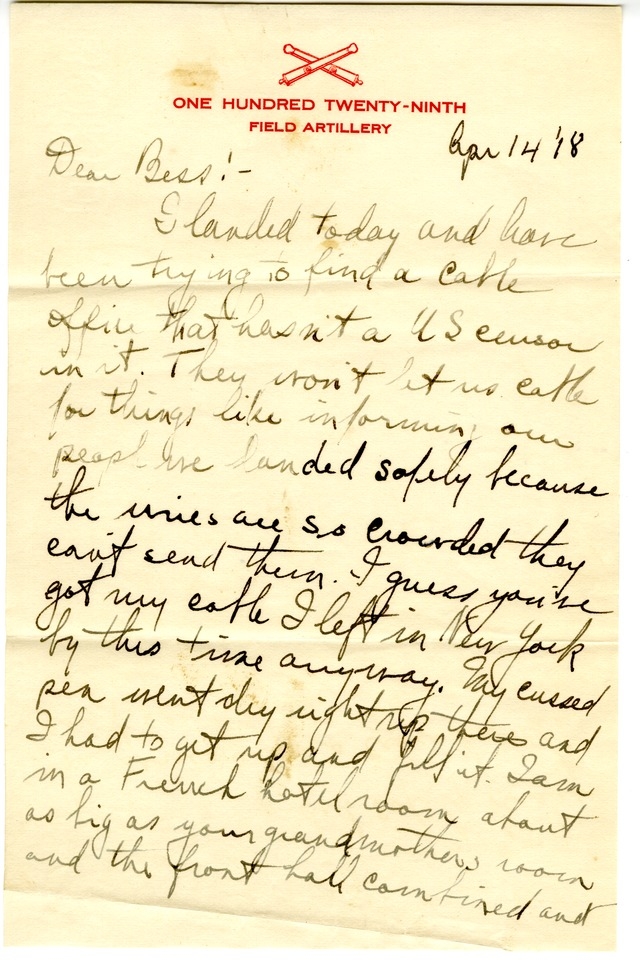 ONE HUNDRED TWENTY-NINTH
FIELD ARTILLERY
Apr 14 '18
Dear Bess:-
I landed today and have
been trying to find a cable
office that hasn't a US censor
in it. They won't let us cable
for things like informing our
people we landed safely because
the wires are so crowded they
can't send them. I guess you've
got my cable I left in New York
by this time anyway. My cussed
pen went dry right up there and
I had to get up and fill it. I am
in a French hotel room about
as big as your grandmother's room
and the front hall combined and